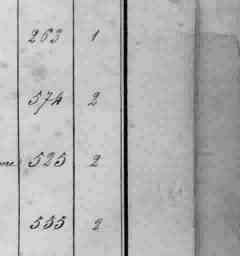 263 1
574 2
525 2
555 2